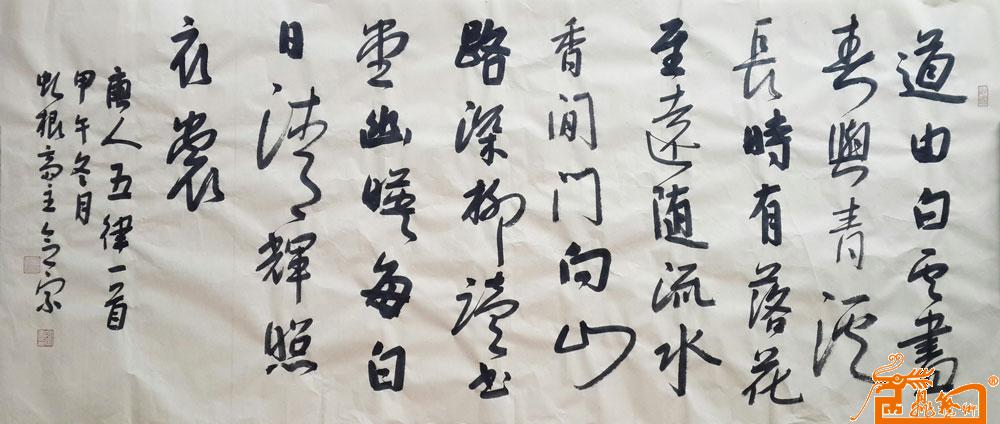 道由白雲盡
春與青溪
長時有落花
至遠随流水
香間門向山
路深柳讀书
堂幽暎每白
日清輝照
衣裳
唐人五律一首
甲午冬月
根斋主宗